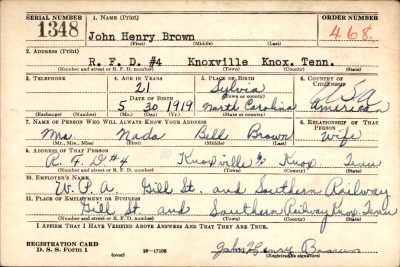 SERIAL NUMBER 1. NAME (Print) ORDER NUMBER
1348 John Henry Brown 468
(First) (Middle) (Last)
2. ADDRESS (Print)
R. F. D. #4 Knoxville Knox. Tenn.
(Number and street or R. F. D. number) (Town) (County) (State)
3. TELEPHONE 4. AGE IN YEARS 5. PLACE OF BIRTH 6. COUNTRY OF CITIZENSHIP
21 Sylvia USA
DATE OF BIRTH (Town or county)
5 30 1919 North Carolina American
(Exchange) (Number) (Mo.) (Day) (Yr.) (State or country)
7. NAME OF PERSON WHO WILL ALWAYS KNOW YOUR ADDRESS 8. RELATIONSHIP OF THAT PERSON
Mrs. Nada Bell Brown Wife
(Mr., Mrs., Miss) (First) (Middle) (Last)
9. ADDRESS OF THAT PERSON
R. F. D #4 Knoxville Knox Tenn
(Number and street or R. F. D. number) (Town) (County) (State)
10. EMPLOYER'S NAME
W. P. A. Gill St. and Southern Railway
11. PLACE OF EMPLOYMENT OR BUSINESS
Gill St. and Southern Railway Knox. Tenn
(Number and street or R. F. D. number) (Town) (County) (State)
I AFFIRM THAT I HAVE VERIFIED ABOVE ANSWERS AND THAT THEY ARE TRUE.
REGISTRATION CARD
D. S. S. Form 1 16-17105 John Henry Brown
(over) (Registrant's signature)